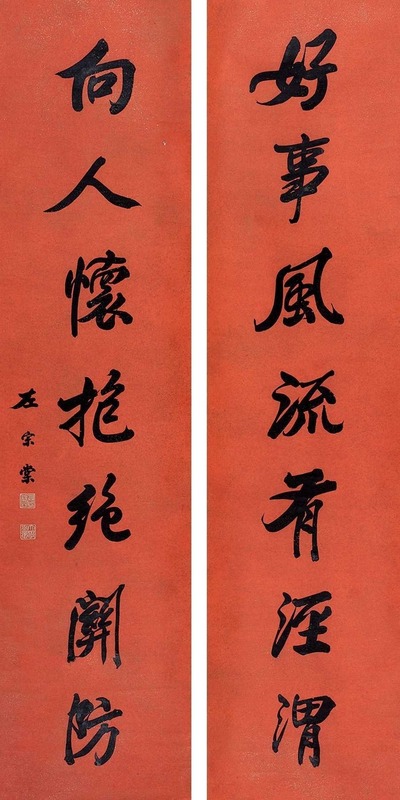 好事風流有涇渭
向人懷抱絕關防
左宗棠